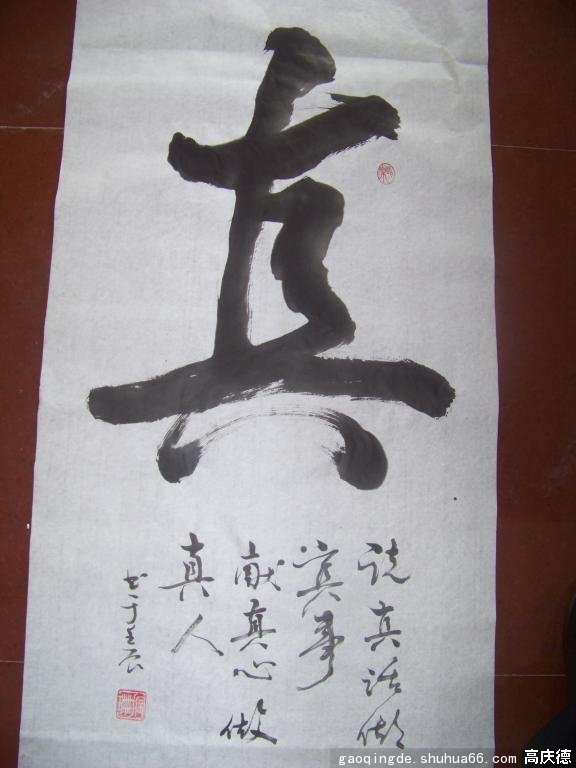 真
说真话做
实事
献真心做
真人
书于壬辰
gaoqingde.shuhua66.com 高庆德